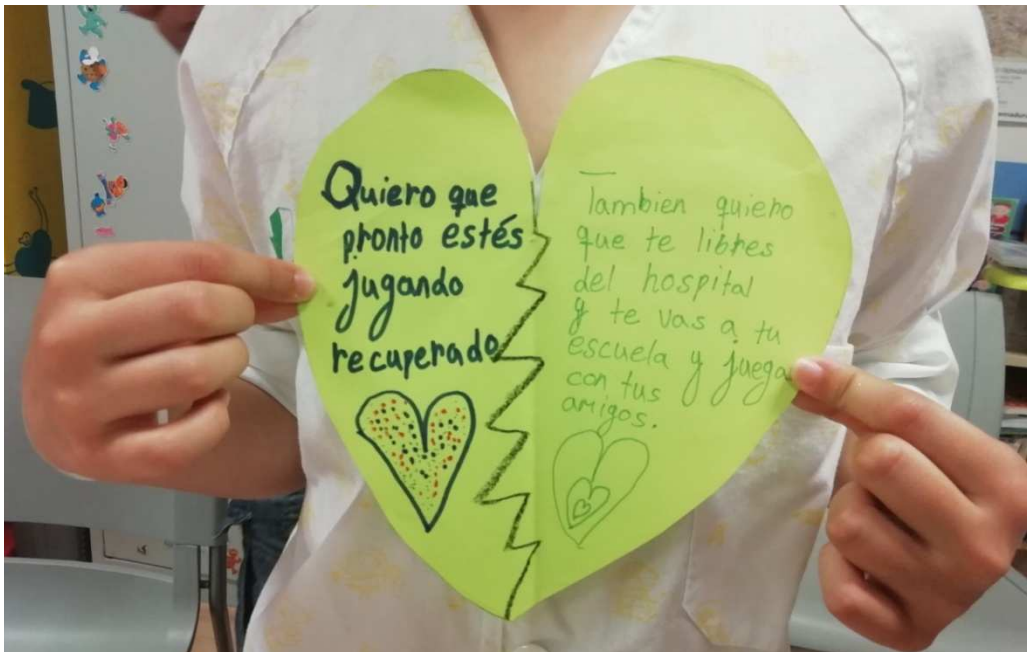 Quiero que
pronto estés
jugando
recuperado
Tambien quiero
que te libres
del hospital
y te vas a tu
escuela y juegas
con tus
amigos.